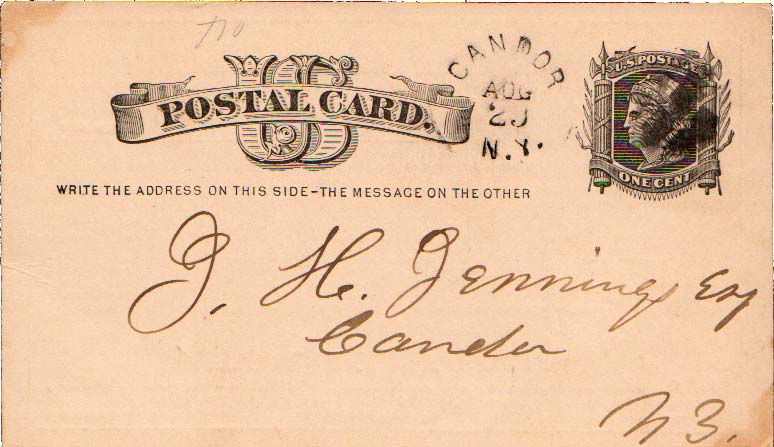 U.S. POSTAGE
US
POSTAL CARD.
CANDOR
AUG
N.Y.
ONE CENT
WRITE THE ADDRESS ON THIS SIDE-THE MESSAGE ON THE OTHER
J. H. Jennings Esq
Candor